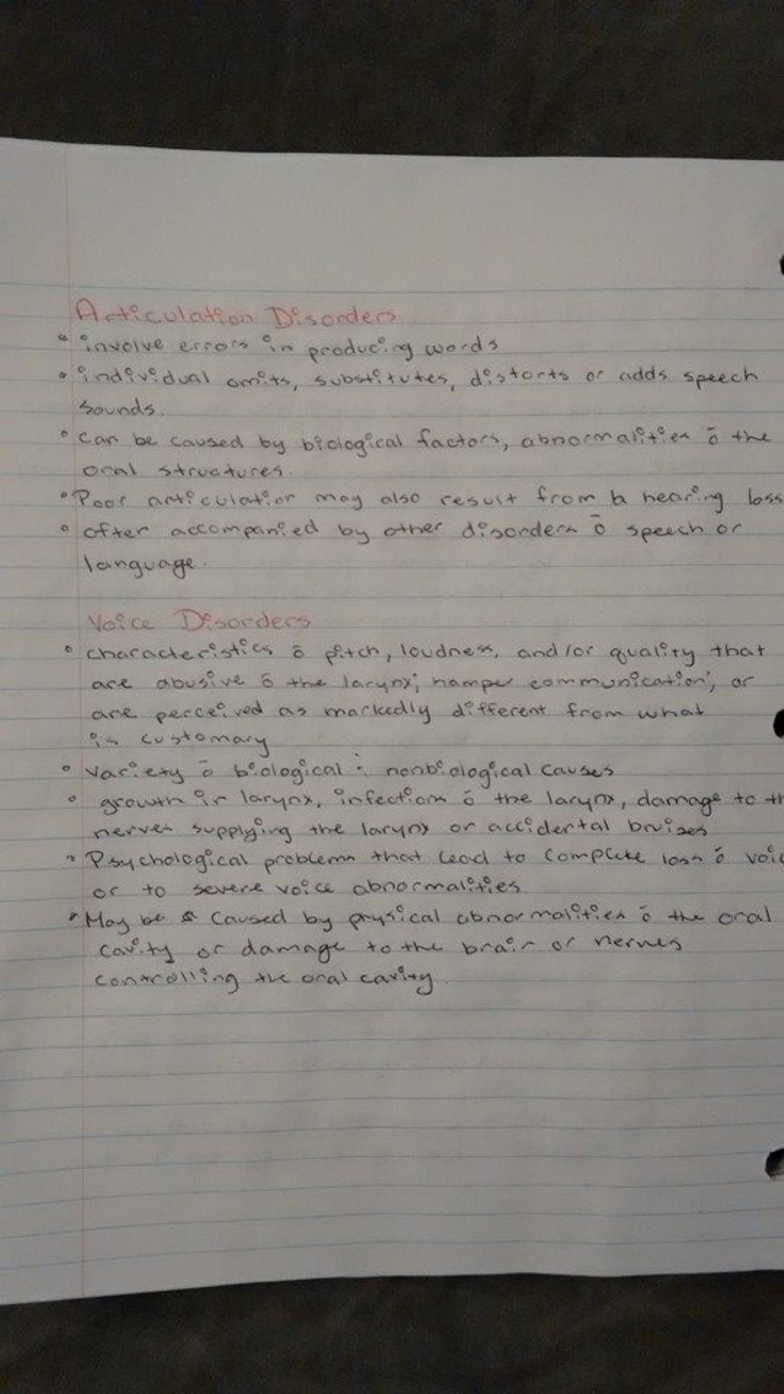 Articulation Disorders
• involve errors in producing words
• individual omits, substitutes, distorts or adds speech
sounds.
• can be caused by biological factors, abnormalities ō the
oral structures.
• Poor articulation may also result from a hearing loss
• often accompanied by other disorders ō speech or
language.
Voice Disorders
• characteristics ō pitch, loudness, and/or quality that
are abusive ō the larynx; hamper communication; or
are perceived as markedly different from what
is customary
• variety ō biological : nonbiological causes
• growth in larynx, infections ō the larynx, damage to th
nerves supplying the larynx or accidental bruises
• Psychological problems that lead to complete loss ō voic
or to severe voice abnormalities
• May be caused by physical abnormalities ō the oral
cavity or damage to the brain or nerves
controlling the oral cavity.